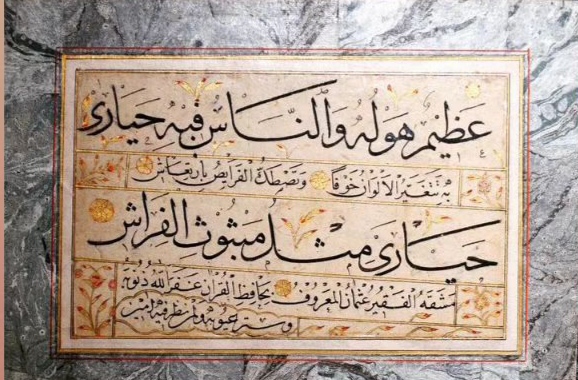 عَظِيمٌ هَوْلُهُ وَالنَّاسُ فِيهِ حَيَارَى
بِهِ تَتَغَيَّرُ الْأَلْوَانُ خَوْفًا وَتَصْطَكُّ الْفَرَائِصُ بِارْتِعَاشِ
حَيَارَى مِثْلَ مَبْثُوثِ الْفَرَاشِ
مشقه الفقير عثمان المعروف بحافظ القرآن غفر الله ذنوبه
وستر عيوبه ولمن نظر فيه